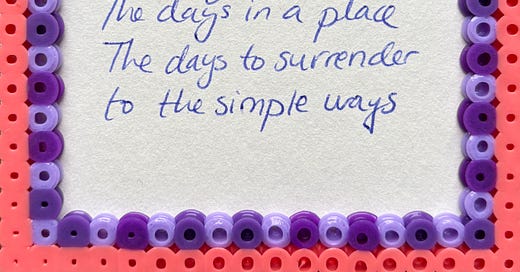 The days in a place
The days to surrender
to the simple ways